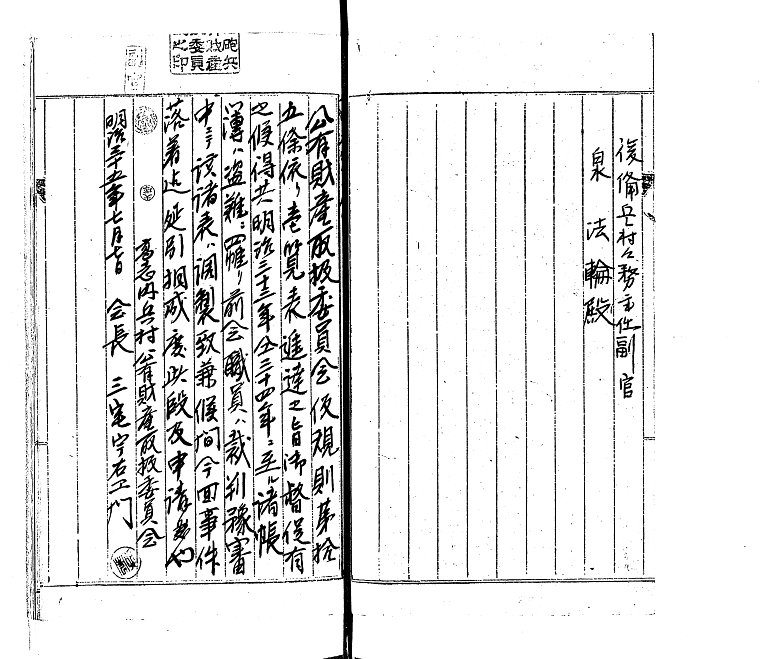 公有財産取扱委員会仮規則第拾
五條依リ壱覧表進達之旨御督促有
之候得共明治三十三年仝三十四年ニ至ル諸帳
簿ハ盗難ニ罹リ前会職員ハ裁判豫審
中ニテ該諸表ハ調製致兼候間今回事件
落着迄延引相成度此段及申請候也
明治三十五年七月七日
兵村公有財産取扱委員会
会長 三宅宇右エ門
後備兵村々務主任副官
泉 法輪殿